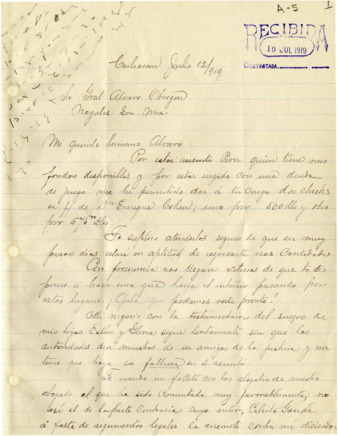 A-5 1
RECIBIDA
19 JUL 1919
CONTESTADA
Culiacan Julio 12/919
Sr Gral Alvaro Obregon
Nogales Son. Mna.
Mi querido hermano Alvaro
Por estar ausente Bon quien tiene mis
fondos disponibles y por estar urgido con una deuda
de juego me he permitido dar á tu cargo dos cheks
en f. de Dn Enrique Cohen, uno por 500 dlls y otro
por 575 Dlls.
Te suplico atenderlos seguro de que en muy
pocos dias estaré en aptitud de regresarte esas cantidades
Con frecuencia nos llegan noticias de que te dis-
pones á hacer una gira hacia el interior pasando por
estos lugares, Ojalá que podamos verte pronto!
Mi negocio con la testamentaria del suegro de
mis hijas Estela y Gloria sigue lentamente sin que las
autoridades den muestras de ser amigos de la justicia y me
temo que haya su en el asunto.
Te mando un folleto con los alegatos de nuestro
abogado el que ha sido comentado muy favorablemente, no
así el de la parte Contraria cuyo autor, Celso Gaxiola
á falta de argumentos legales la arremete contra mi